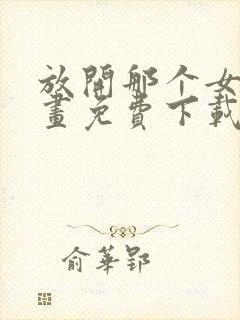 放開那个女
畫免費下載
俞華郢